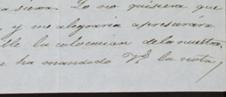 siera. Lo no quisiera que
y me alegraria apresurára
lle la colocacion dela nuestra,
e ha mandado Vd la nota,